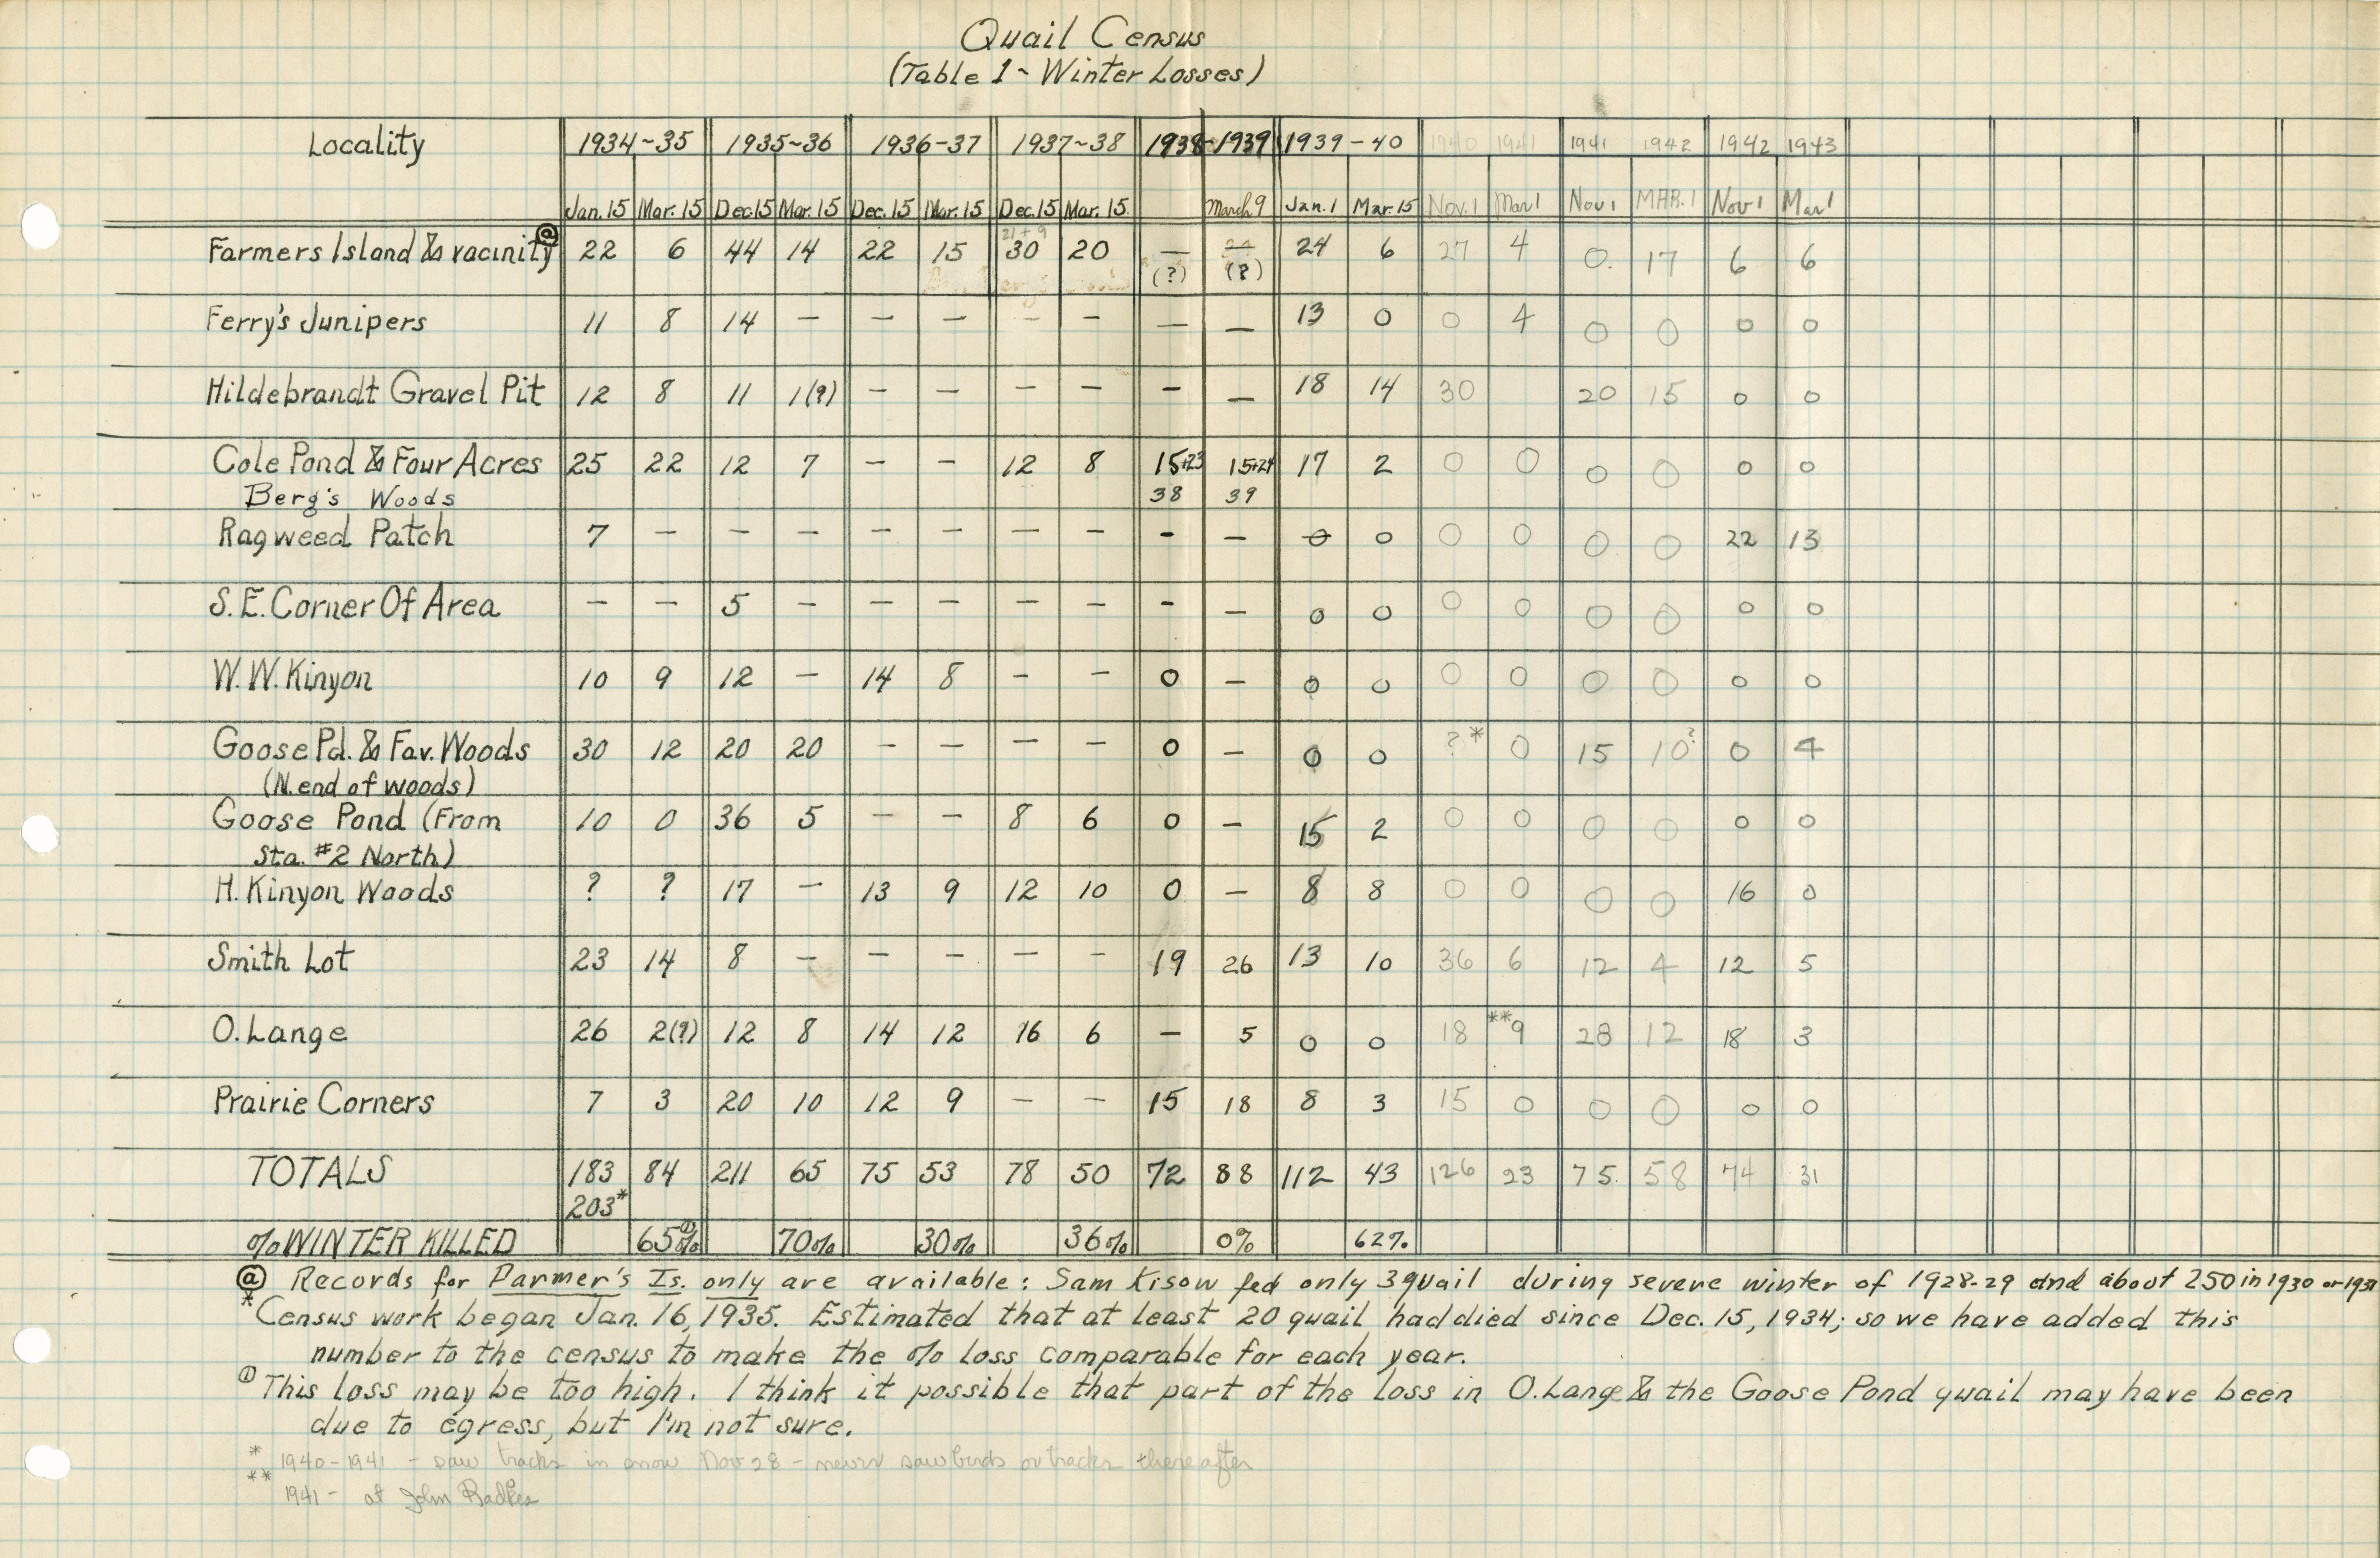 Quail Census
(Table 1 ~ Winter Losses)
Locality 1934~35 1935~36 1936-37 1937~38 1938-1939 1939-40 1940 1941 1941 1942 1942 1943
Jan. 15 Mar. 15 Dec. 15 Mar. 15 Dec. 15 Mar. 15 Dec. 15 Mar. 15 March 9 Jan. 1 Mar. 15 Nov. 1 Mar 1 Nov 1 MAR. 1 Nov 1 Mar 1
21 + 9
Farmers Island & vacinity @ 22 6 44 14 22 15 30 20 — 24 6 27 4 0. 17 6 6
(?) (?)
Ferry's Junipers 11 8 14 – – – – – — — 13 0 0 4 0 0 0 0
Hildebrandt Gravel Pit 12 8 11 1(?) – – – – – — 18 14 30 20 15 0 0
Cole Pond & Four Acres 25 22 12 7 – – 12 8 15+23 15+24 17 2 0 0 0 0 0 0
Berg's Woods 38 39
Ragweed Patch 7 – – – – – – – – – 0 0 0 0 0 0 22 13
S. E. Corner Of Area – – 5 – – – – – – – 0 0 0 0 0 0 0 0
W. W. Kinyon 10 9 12 – 14 8 – – 0 – 0 0 0 0 0 0 0 0
Goose Pd. & Fav. Woods 30 12 20 20 – – – – 0 – 0 0 ?* 0 15 10? 0 4
(N. end of woods)
Goose Pond (From 10 0 36 5 – – 8 6 0 – 15 2 0 0 0 0 0 0
Sta. #2 North)
H. Kinyon Woods ? ? 17 – 13 9 12 10 0 – 8 8 0 0 0 0 16 0
Smith Lot 23 14 8 – – – – – 19 26 13 10 36 6 12 4 12 5
O. Lange 26 2(?) 12 8 14 12 16 6 – 5 0 0 18 **9 28 12 18 3
Prairie Corners 7 3 20 10 12 9 – – 15 18 8 3 15 0 0 0 0 0
TOTALS 183 84 211 65 75 53 78 50 72 88 112 43 126 23 75. 58 74 31
203*
% WINTER KILLED 65%① 70% 30% 36% 0% 62%
@ Records for Farmer's Is. only are available: Sam Kisow fed only 3 quail during severe winter of 1928-29 and about 250 in 1930 or 1931
* Census work began Jan. 16, 1935. Estimated that at least 20 quail had died since Dec. 15, 1934; so we have added this
number to the census to make the % loss comparable for each year.
① This loss may be too high. I think it possible that part of the loss in O. Lange & the Goose Pond quail may have been
due to egress, but I'm not sure.
* 1940-1941 - saw tracks in snow Nov 28 - never saw birds or tracks thereafter
** 1941 - at John Radkes